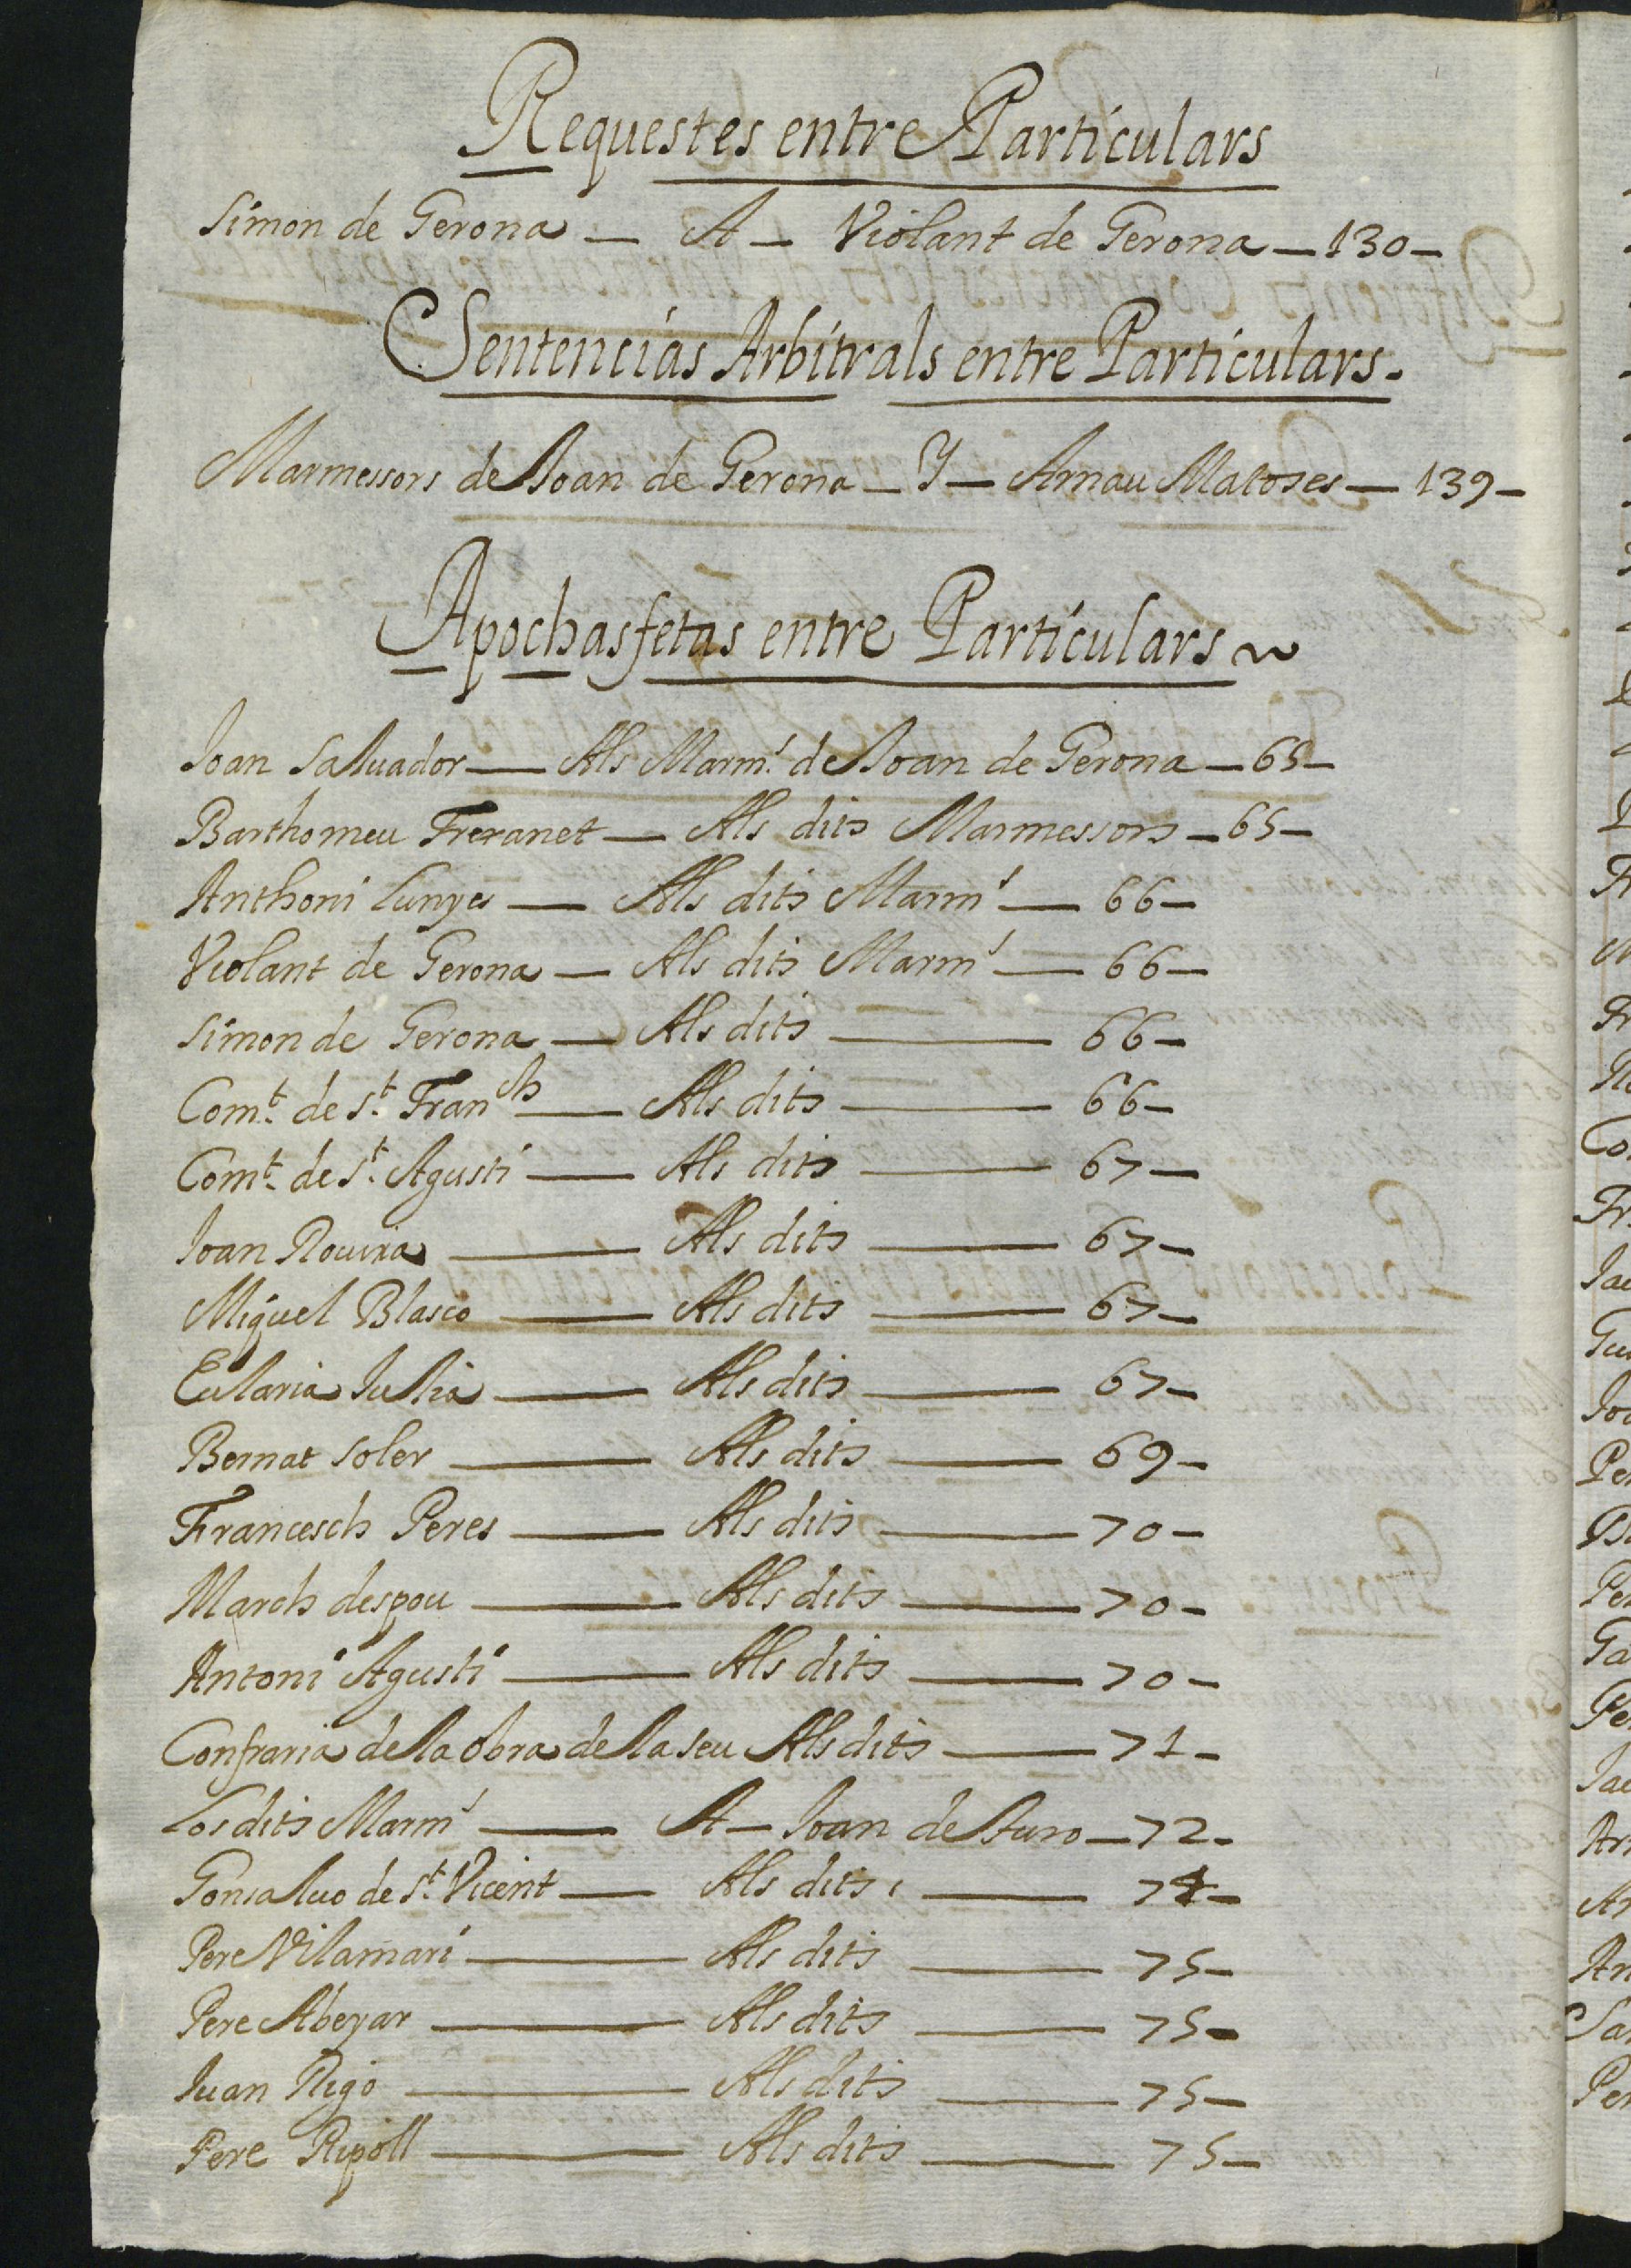 Requestes entre Particulars
Simon de Gerona — A — Violant de Gerona — 130 —
Sentencias Arbitrals entre Particulars.
Marmessors de Joan de Gerona — Y — Arnau Matoses — 139 —
Apochas fetas entre Particulars
Joan Saluador — Als Marm.s de Joan de Gerona — 65 —
Barthomeu Freranet — Als dits Marmessors — 65 —
Anthoni Lunyes — Als dits Marm.s — 66 —
Violant de Gerona — Als dits Marm.s — 66 —
Simon de Gerona — Als dits — 66 —
Com.t de S.t Fran.ch — Als dits — 66 —
Com.t de S.t Agusti — Als dits — 67 —
Joan Rouira — Als dits — 67 —
Miquel Blasco — Als dits — 67 —
Eularia Julia — Als dits — 67 —
Bernat Soler — Als dits — 69 —
Francesch Peres — Als dits — 70 —
March despou — Als dits — 70 —
Antoni Agusti — Als dits — 70 —
Confraria de la obra de la seu Als dits — 71 —
Los dits Marm.s — A — Joan de — 72 —
Gonsaluo de S.t Vicent — Als dits — 74 —
Pere Vilamari — Als dits — 75 —
Pere Abeyar — Als dits — 75 —
Juan Rigo — Als dits — 75 —
Pere Ripoll — Als dits — 75 —